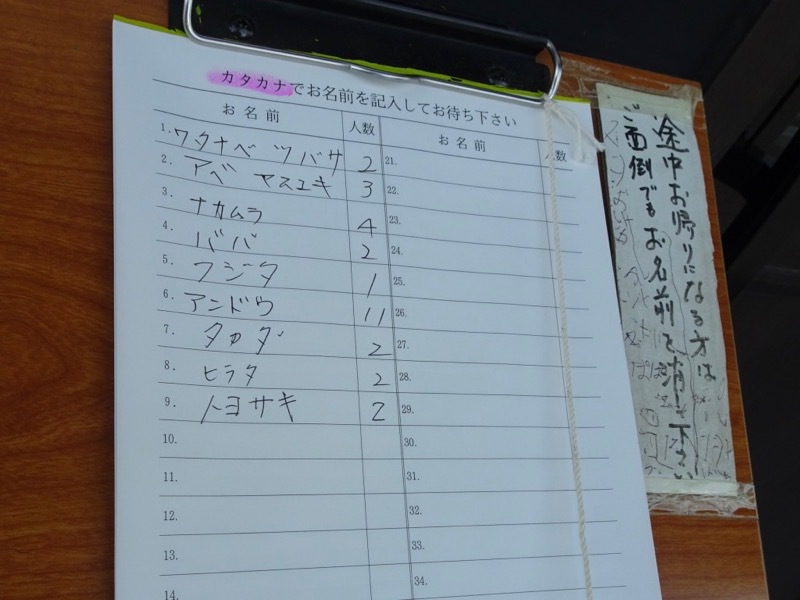 カタカナでお名前を記入してお待ち下さい
お名前 人数 お名前 人数
1. ワタナベ ツバサ 2
2. アベ ヤスユキ 3
3. ナカムラ 4
4. ババ 2
5. フジタ 1
6. アンドウ 11
7. タカダ 2
8. ヒラタ 2
9. トヨサキ 2
10.
11.
12.
13.
14.
21.
22.
23.
24.
25.
26.
27.
28.
29.
30.
31.
32.
33.
34.
途中お帰りになる方は
ご面倒でもお名前を消して下さい